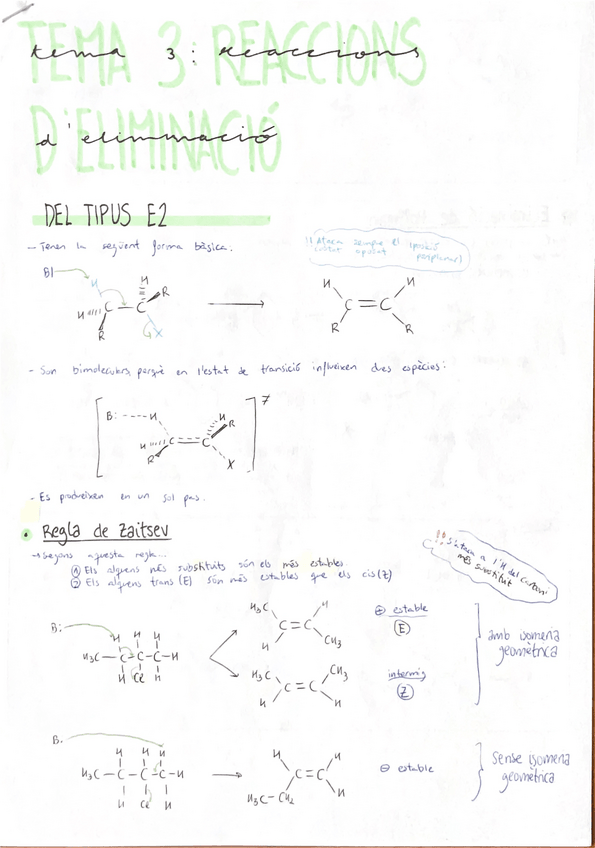 TEMA 3: REACCIONS
tema 3: reaccions
D'ELIMINACIÓ
d'eliminació
DEL TIPUS E2
- Tenen la següent forma bàsica:
!! Ataca sempre el
costat oposat (posició
periplanar)
B:
H
H
R
H C - C
R X
H H
C = C
R R
- Són bimoleculars perquè en l'estat de transició influeixen dues espècies:
B: ---- H
H
R
H C C
R
X
‡
- Es produeixen en un sol pas.
• Regla de Zaitsev
→ Segons aquesta regla...
① Els alquens més substituïts són els més estables.
② Els alquens trans (E) són més estables que els cis (Z)
!! S'ataca a l'H del carboni
més substituït
B:
H H H
H3C - C - C - C - H
H Cl H
H3C H
C = C
H CH3
⊕ estable
(E)
H3C CH3
C = C
H H
intermig
(Z)
amb isomeria
geomètrica
B:
H H H
H3C - C - C - C - H
H Cl H
H H
C = C
H3C - CH2 H
⊖ estable
sense isomeria
geomètrica